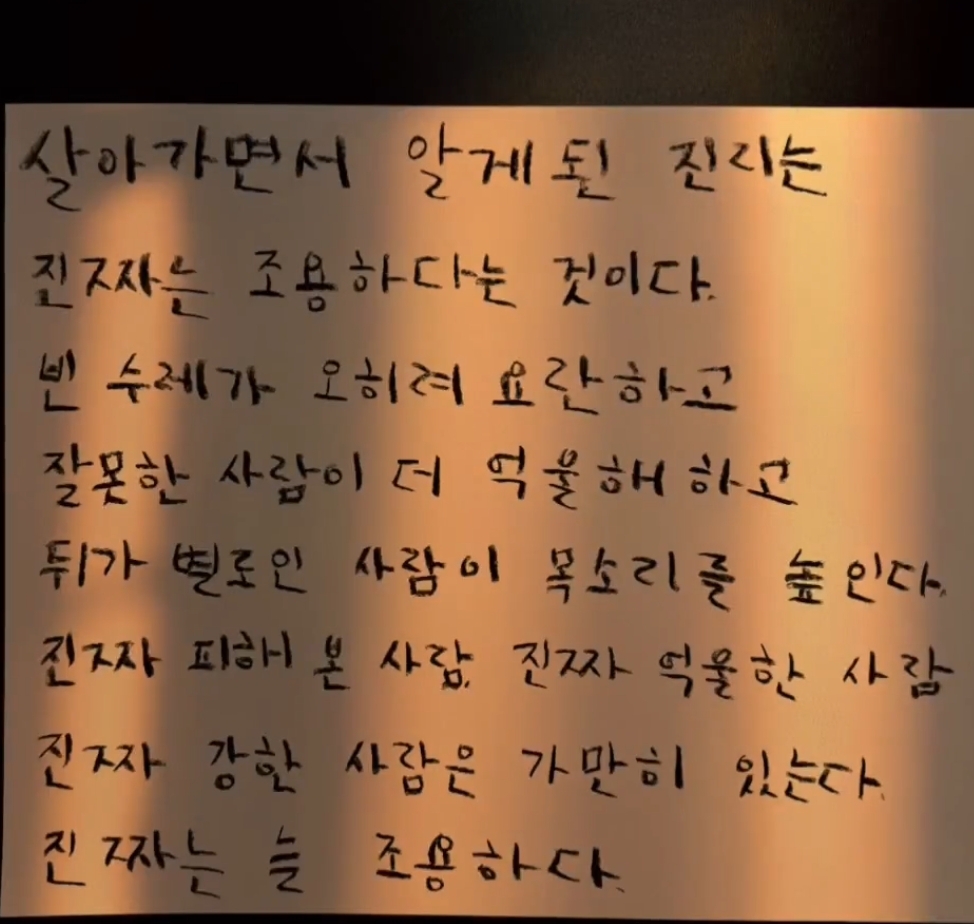 살아가면서 알게 된 진리는
진짜는 조용하다는 것이다.
빈 수레가 오히려 요란하고
잘못한 사람이 더 억울해 하고
뒤가 별로인 사람이 목소리를 높인다.
진짜 피해 본 사람, 진짜 억울한 사람
진짜 강한 사람은 가만히 있는다.
진짜는 늘 조용하다.